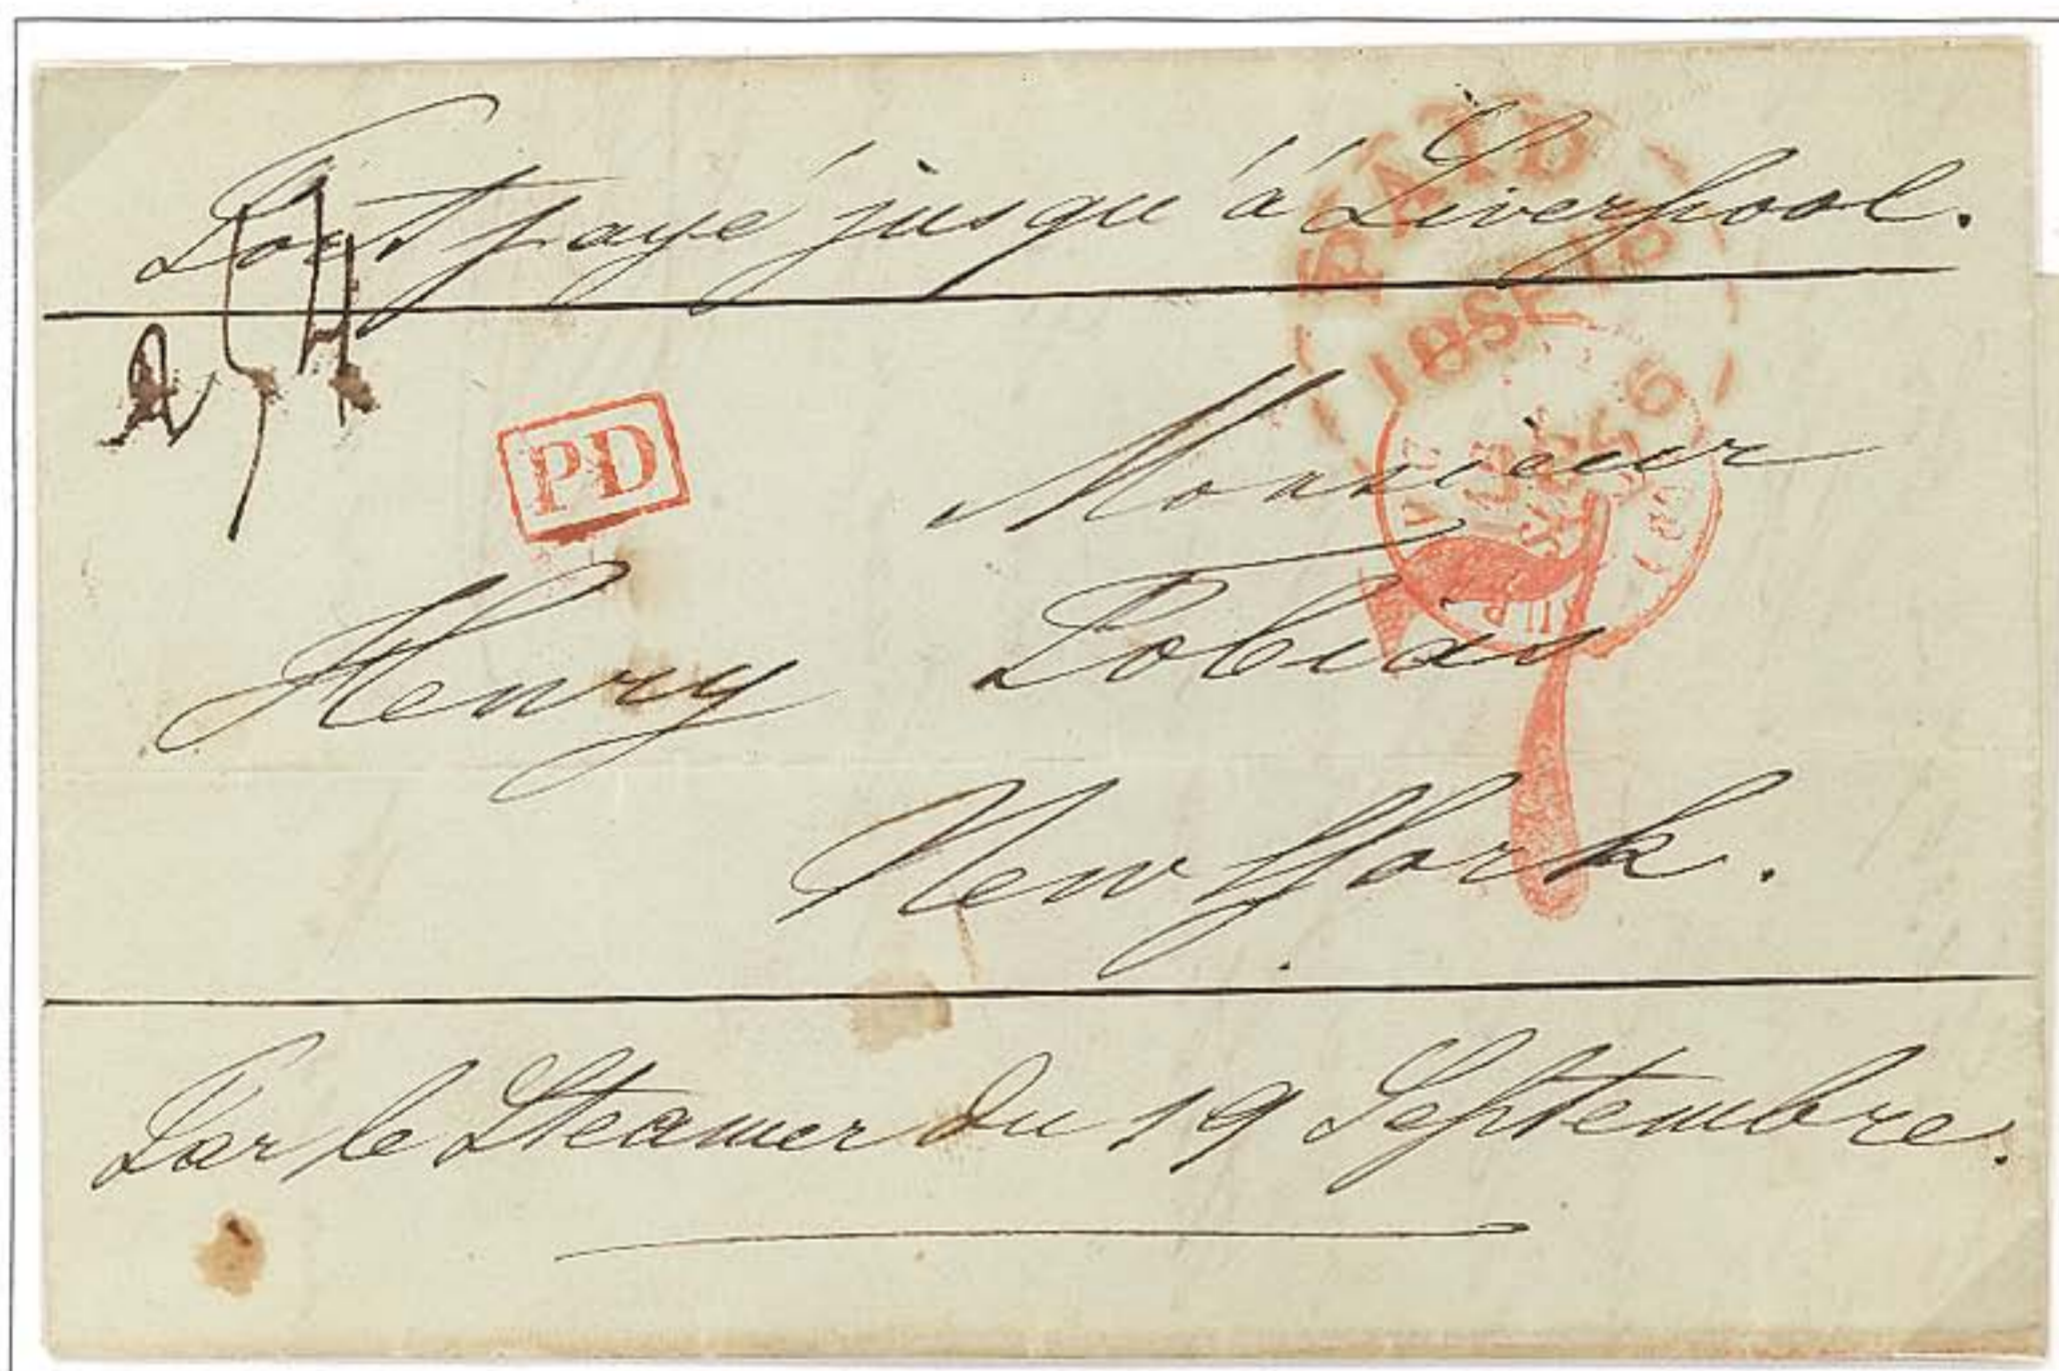 Port payé jusqu'à Liverpool.
PAID
18SE18
1846
PD
Monsieur
Henry Tobias
New York.
Par le Steamer du 19 Septembre.